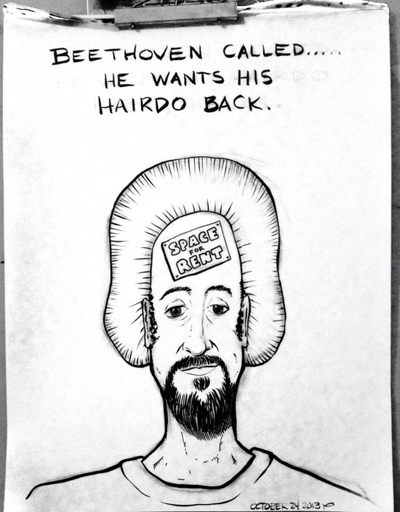 BEETHOVEN CALLED.....
HE WANTS HIS
HAIRDO BACK.
SPACE
FOR
RENT
OCTOBER 24 2013